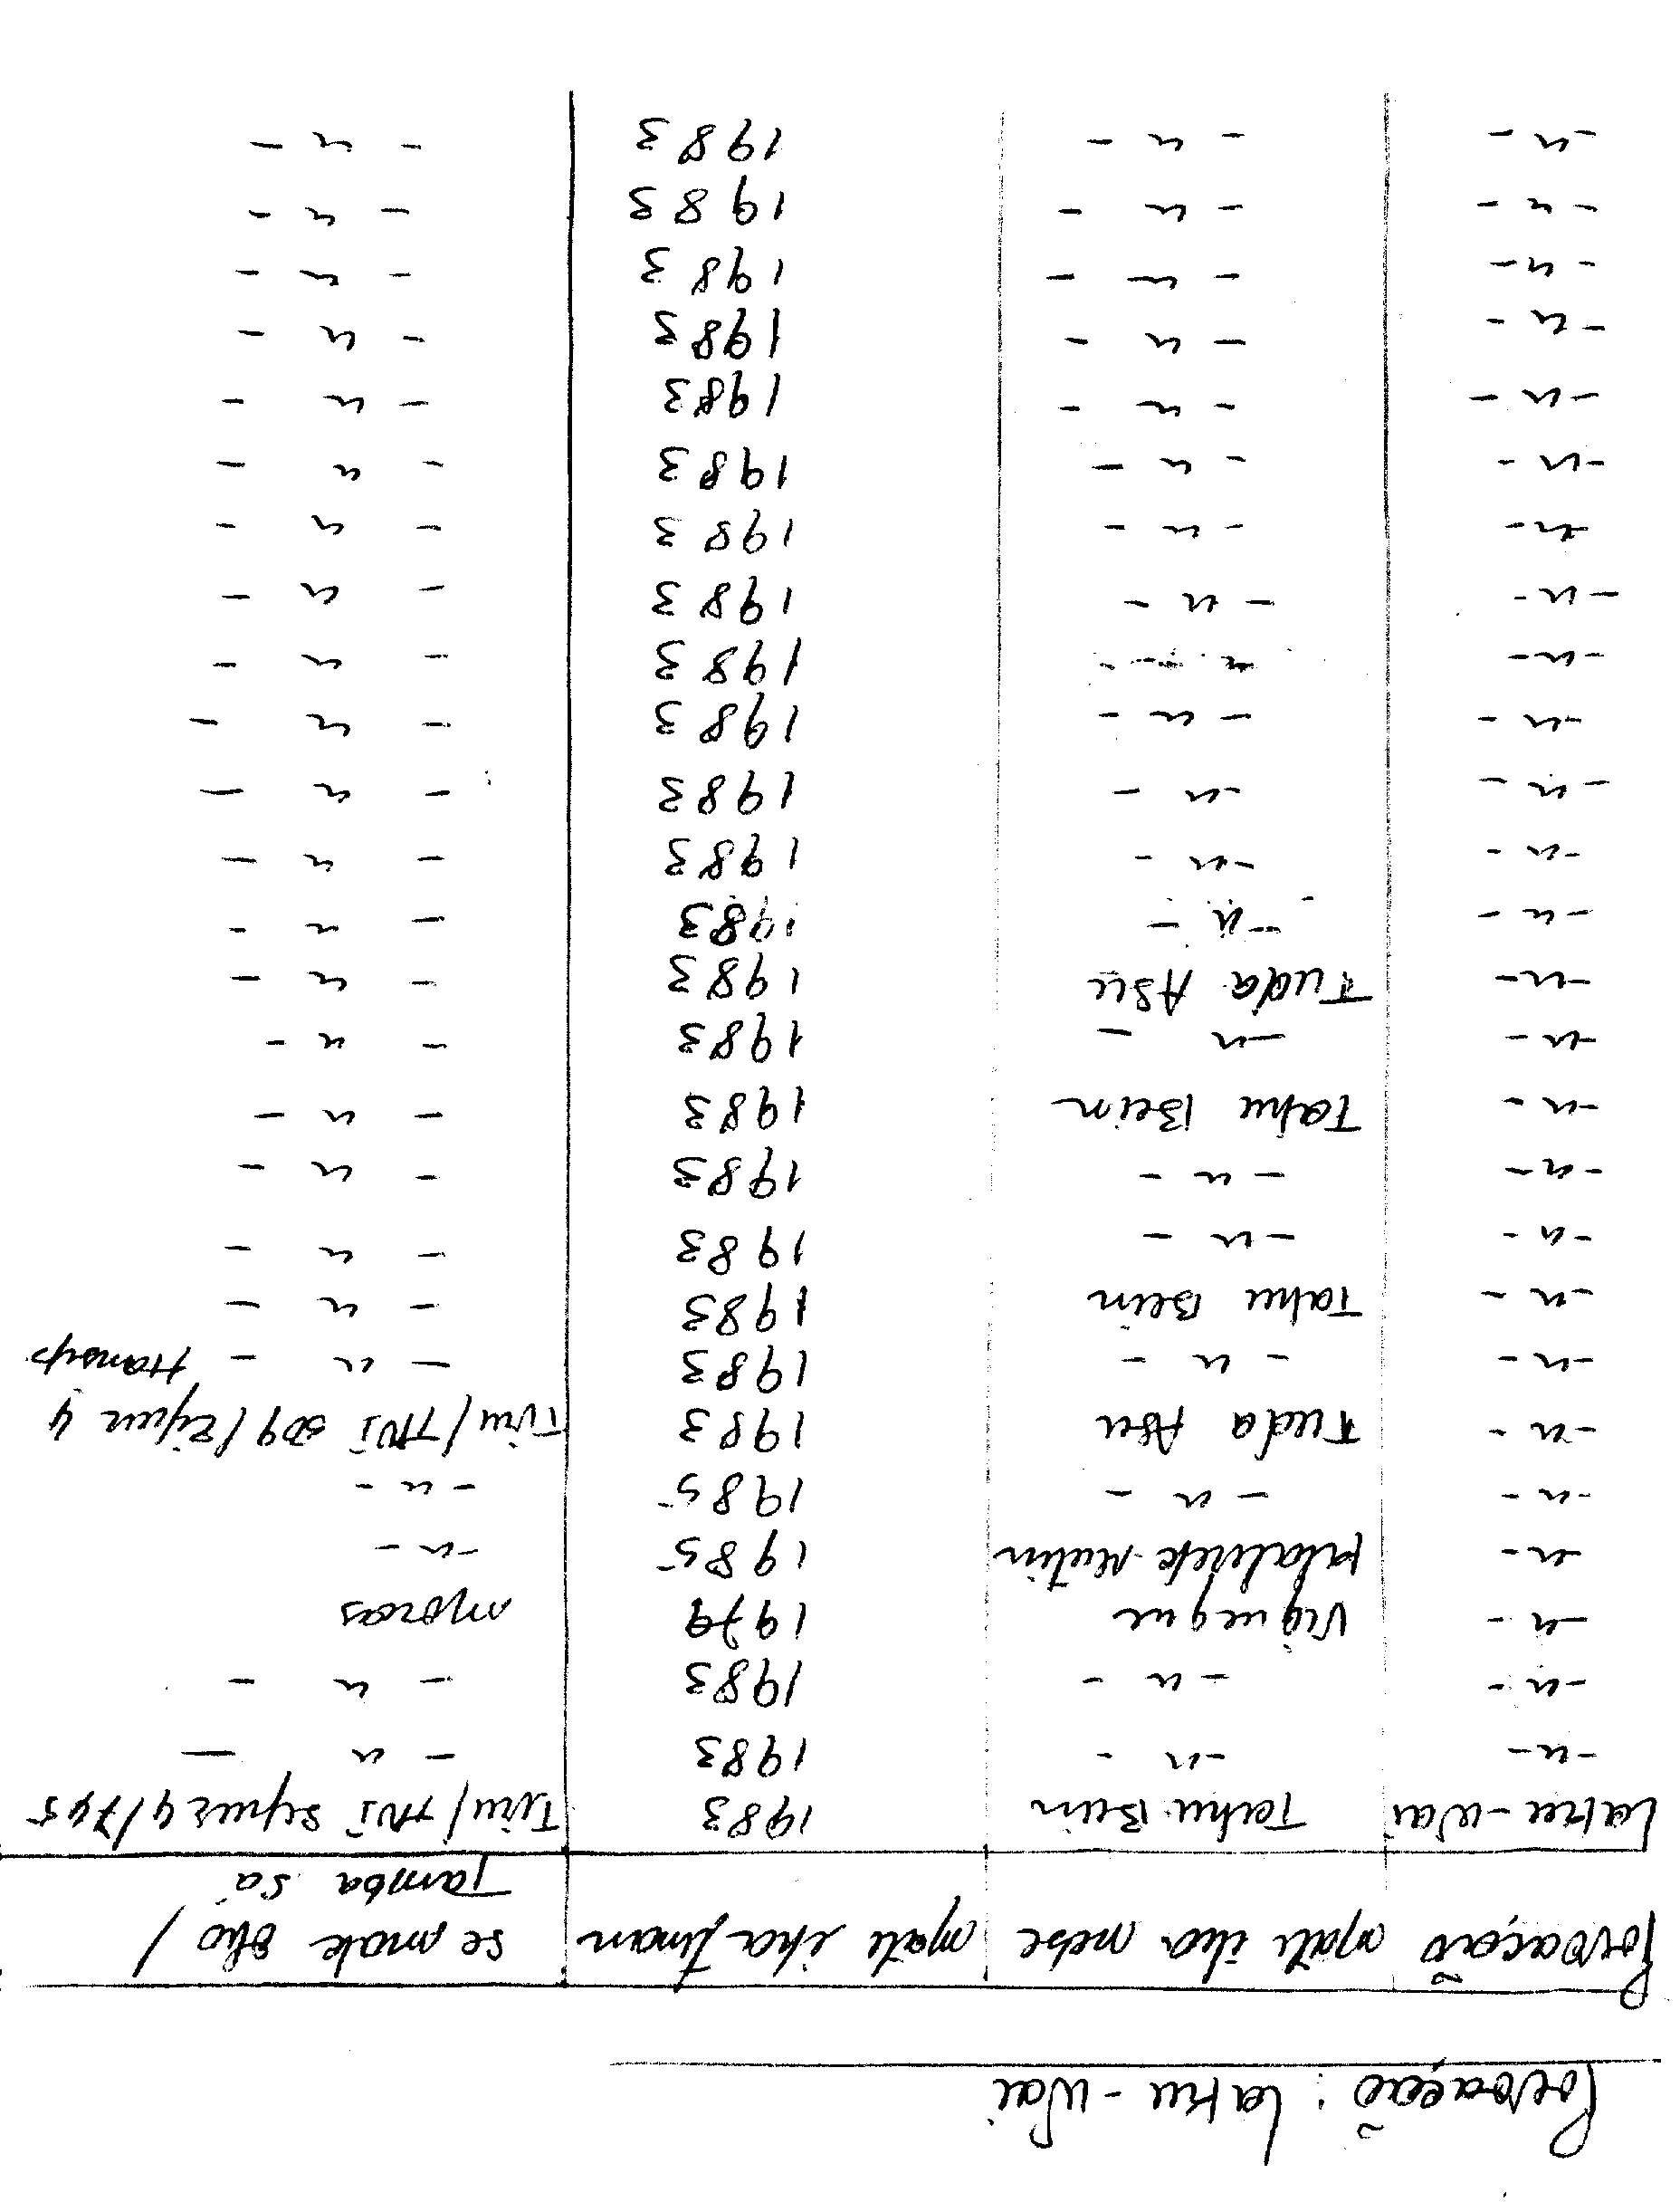 Povoação : Laku-Wai
Povoação mati iha nebe mati iha tinan se mak oho /
Tamba sá
Laku-Wai Tahu Bein 1983 Tiru/TNI Sejur 4/745
-u- -u- 1983 -u-
-u- -u- 1983 -u-
-u- Viqueque 1979 moras
-u- Klalerek-Mutin 1985 -u-
-u- -u- 1985 -u-
-u- Fuda Asu 1983 Tiru/TNI 509/Zijur 4
-u- -u- 1983 -u- Hansip
-u- Tahu Bein 1983 -u-
-u- -u- 1983 -u-
-u- -u- 1983 -u-
-u- Tahu Bein 1983 -u-
-u- -u- 1983 -u-
-u- Fuda Asu 1983 -u-
-u- -u- 1983 -u-
-u- -u- 1983 -u-
-u- -u- 1983 -u-
-u- -u- 1983 -u-
-u- -u- 1983 -u-
-u- -u- 1983 -u-
-u- -u- 1983 -u-
-u- -u- 1983 -u-
-u- -u- 1983 -u-
-u- -u- 1983 -u-
-u- -u- 1983 -u-
-u- -u- 1983 -u-
-u- -u- 1983 -u-